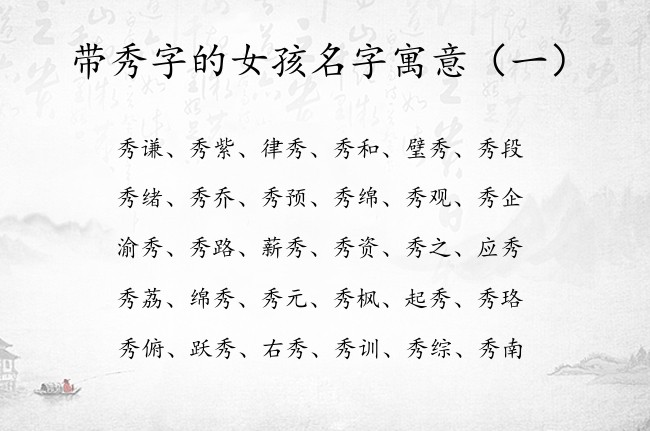 带秀字的女孩名字寓意（一）
秀谦、秀紫、律秀、秀和、璧秀、秀段
秀绪、秀乔、秀预、秀绵、秀观、秀企
渝秀、秀路、薪秀、秀资、秀之、应秀
秀荔、绵秀、秀元、秀枫、起秀、秀珞
秀俯、跃秀、右秀、秀训、秀综、秀南